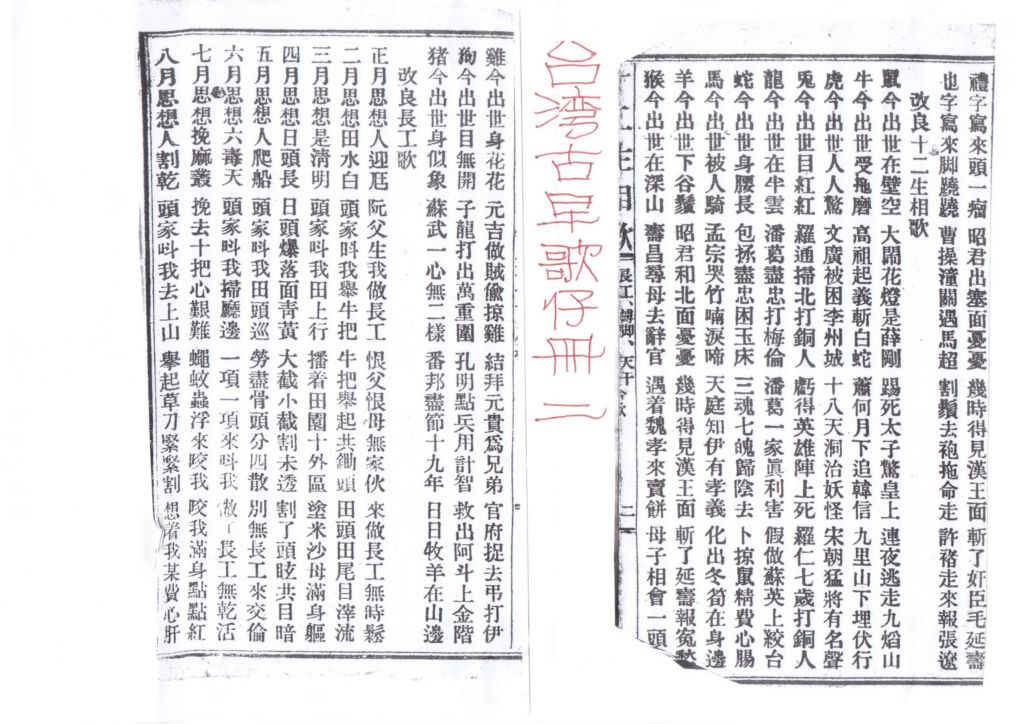 禮字寫來頭一瘤 昭君出塞面憂憂 幾時得見漢王面 斬了奸臣毛延壽
也字寫來脚蹺蹺 曹操潼關遇馬超 割鬚去袍拖命走 許褚走來報張遼
改良十二生相歌
鼠今出世在壁空 大閙花燈是薛剛 踢死太子驚皇上 連夜逃走九熖山
牛今出世受拖磨 高祖起義斬白蛇 蕭何月下追韓信 九里山下埋伏行
虎今出世人人驚 文廣被困李州城 十八天洞治妖怪 宋朝猛將有名聲
兎今出世目紅紅 羅通掃北打銅人 虧得英雄陣上死 羅仁七歲打銅人
龍今出世在半雲 潘葛盡忠打梅倫 潘葛一家眞利害 假做蘇英上絞台
蛇今出世身腰長 包拯盡忠困玉床 三魂七魄歸陰去 卜掠鼠精費心腸
馬今出世被人騎 孟宗哭竹喃淚啼 天庭知伊有孝義 化出冬筍在身邊
羊今出世下谷鬚 昭君和北面憂憂 幾時得見漢王面 斬了延壽報寃愁
猴今出世在深山 壽昌尋母去辭官 遇着魏孝來賣餅 母子相會一頭
十二生相歌 長工、縛脚、天干今歌 二
台湾古早歌仔冊 二
雞今出世身花花 元吉做賊偸掠雞 結拜元貴爲兄弟 官府捉去弔打伊
狗今出世目無開 子龍打出萬重圍 孔明點兵用計智 救出阿斗上金階
猪今出世身似象 蘇武一心無二樣 番邦盡節十九年 日日牧羊在山邊
改良長工歌
正月思想人迎尪 阮父生我做長工 恨父恨母無家伙 來做長工無時鬆
二月思想田水白 頭家呌我舉牛把 牛把舉起共鋤頭 田頭田尾目滓流
三月思想是淸明 頭家呌我田上行 播着田園十外區 塗米沙母滿身軀
四月思想日頭長 日頭爆落面青黃 大截小截割未透 割了頭眩共目暗
五月思想人爬船 頭家呌我田頭巡 勞盡骨頭分四散 別無長工來交倫
六月思想六毒天 頭家呌我掃廳邊 一項一項來呌我 做了長工無乾活
七月思想挽麻叢 挽去十把心艱難 蠅蚊蟲浮來咬我 咬我滿身點點紅
八月思想人割乾 頭家呌我去上山 舉起草刀緊緊割 想着我某費心肝